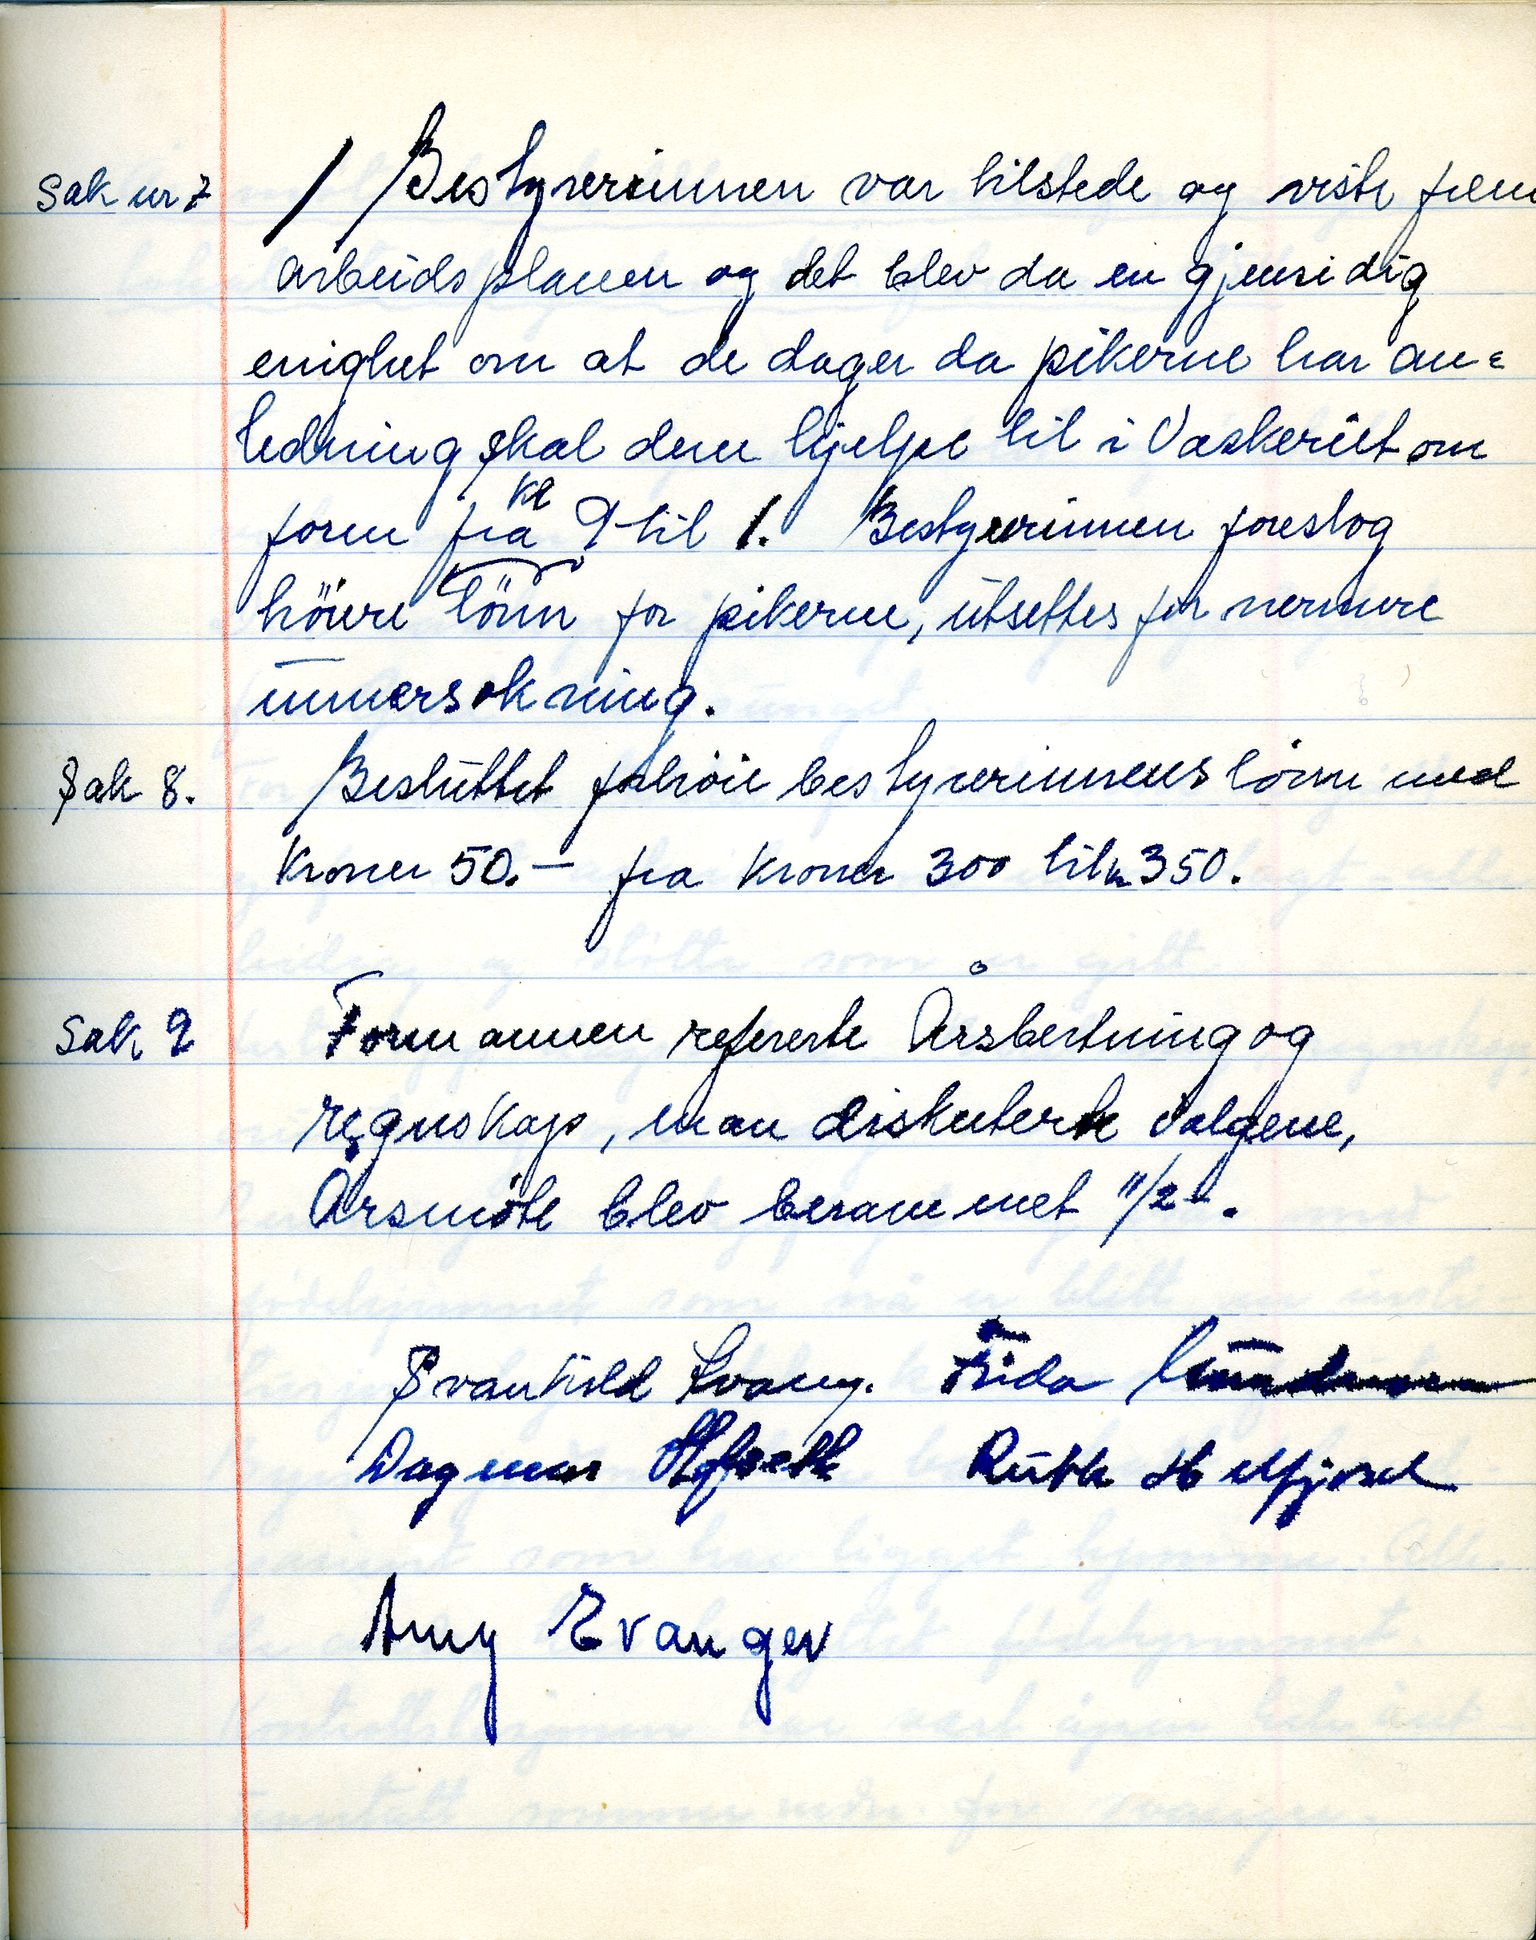 Sak nr 7 / Bestyrerinnen var tilstede og viste frem
arbeidsplanen og det blev da en gjensidig
enighet om at de dager da pikerne har an=
ledning skal dem hjelpe til i Vaskeriet om
form fra kl 9 til 1. Bestyrerinnen foreslog
höiere lönn for pikerne, utsettes for nermere
unnersøkning.
Sak 8. Besluttet forhöie bestyrerinnens lönn med
Kroner 50.- fra Kroner 300 til kr 350.
Sak 9 Formannen refererte Årsbertning og
regnskap, man diskuterte valgene,
Årsmöte blev berammet 11/2-.
Svanhild Evang. Frida
Dagmar Ruth
Amy Evanger